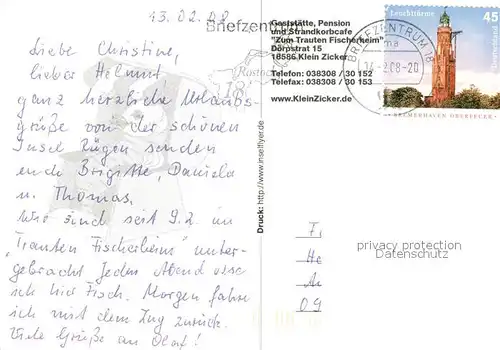 13.02.08
Liebe Christine,
lieber Helmut,
ganz herzliche Urlaubs-
grüße von der schönen
Insel Rügen senden
euch Brigitte, Daniela
u. Thomas.
Wir sind seit 9.2. im
"Trauten Fischerheim" unter-
gebracht. Jeden Abend esse
ich hier Fisch. Morgen fahre
ich mit dem Zug zurück.
Viele Grüße an Olaf!
Briefzentrum
Rostoc
18
Gaststätte, Pension
und Strandkorbcafe
"Zum Trauten Fischerheim"
Dörpstrat 15
18586 Klein Zicker
Telefon: 038308 / 30 152
Telefax: 038308 / 30 153
www.KleinZicker.de
Druck: http://www.inselflyer.de
BRIEFZENTRUM 18
2.08-20
Leuchttürme
45
Deutschland
BREMERHAVEN OBERFEUER
F
He
A
09
privacy protection
Datenschutz